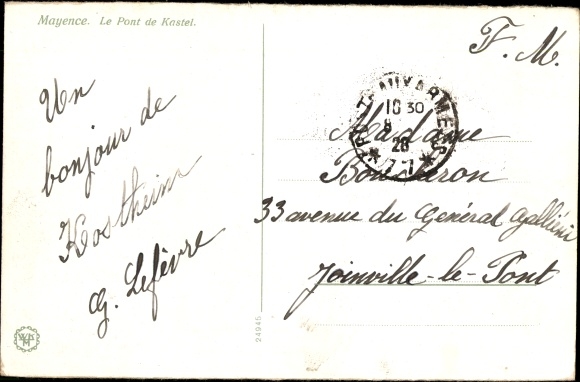 Mayence. Le Pont de Kastel.
Un
bonjour de
Kostheim
G. Lefèvre
F. M.
10 30
8
26
Madame
33 avenue du Général Galliéni
Joinville-le-Pont
24945